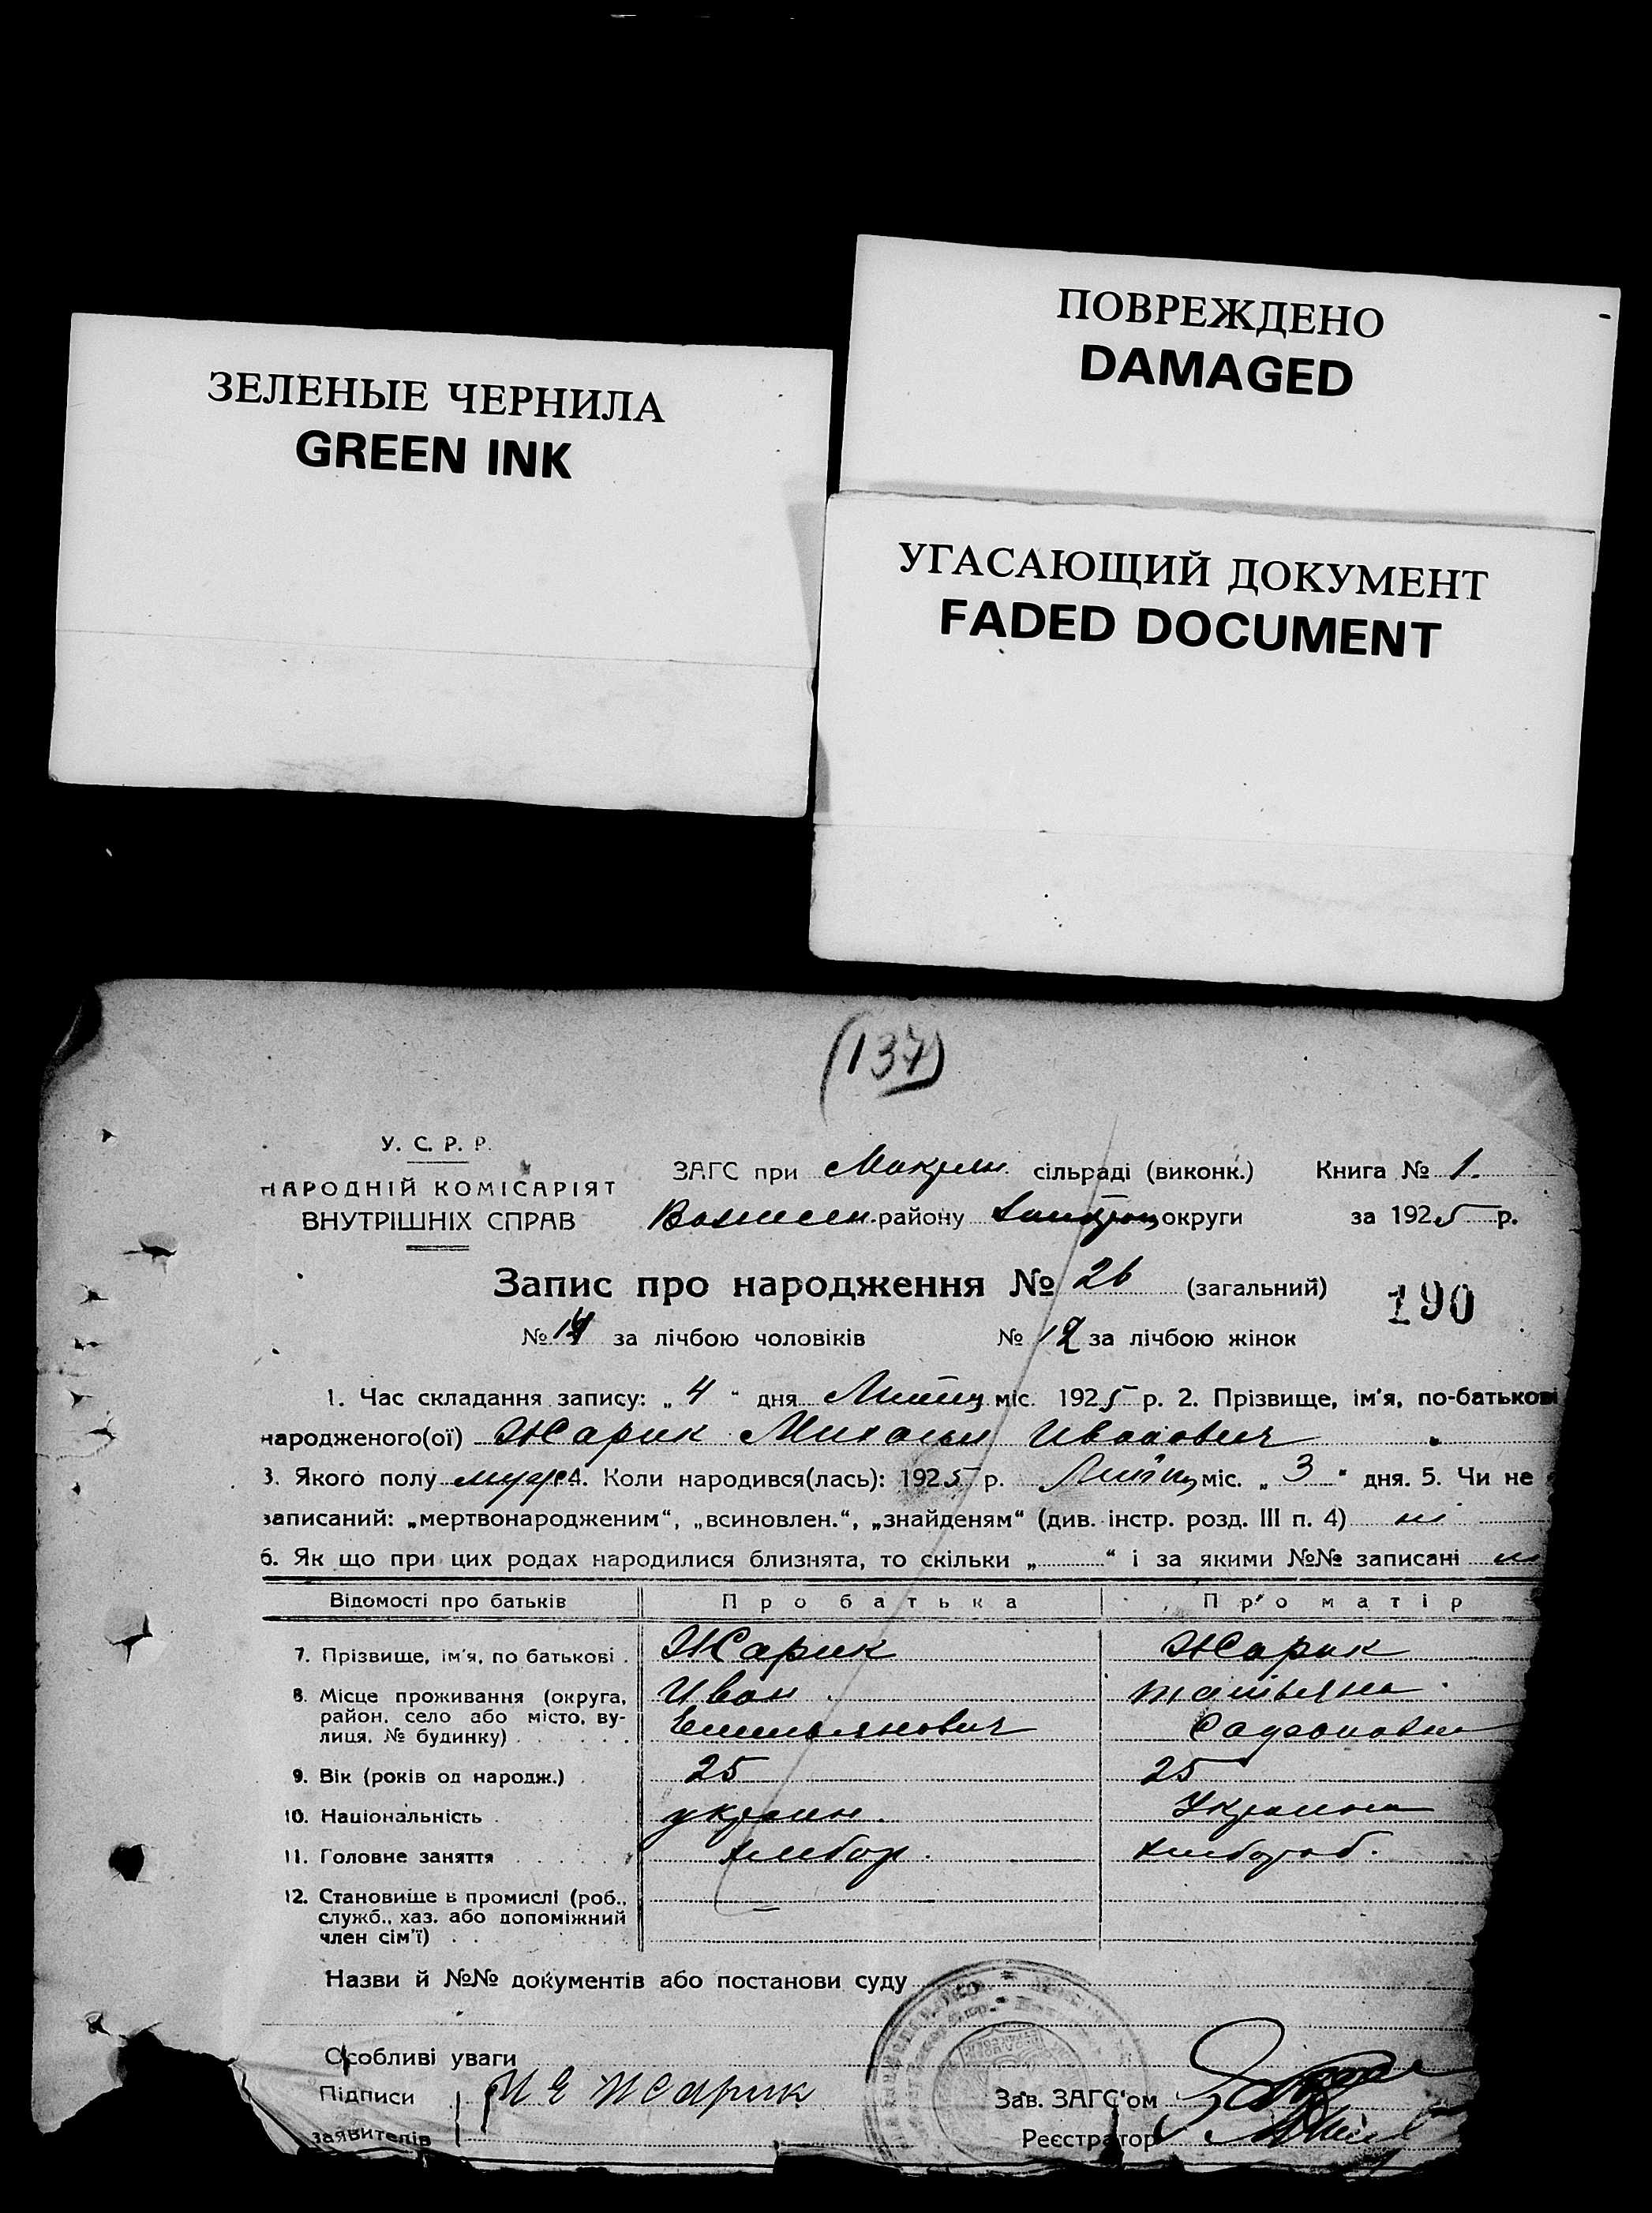 ПОВРЕЖДЕНО
DAMAGED
ЗЕЛЕНЫЕ ЧЕРНИЛА
GREEN INK
УГАСАЮЩИЙ ДОКУМЕНТ
FADED DOCUMENT
(137)
У. С. Р. Р.
НАРОДНІЙ КОМІСАРІЯТ
ВНУТРІШНІХ СПРАВ
ЗАГС при сільраді (виконк.) Книга № 1.
району округи за 1925 р.
Запис про народження № 26 (загальний)
190
№ 14 за лічбою чоловіків № 12 за лічбою жінок
1. Час складання запису: „4“ дня міс. 1925 р. 2. Прізвище, ім'я, по-батькові
народженого(ої) Жарик Михаил Иванович
3. Якого полу муж. 4. Коли народився(лась): 1925 р. міс. „3“ дня. 5. Чи не
записаний: „мертвонародженим“, „всиновлен.“, „знайденям“ (див. інстр. розд. III п. 4) ні
6. Як що при цих родах народилися близнята, то скільки „ “ і за якими №№ записані
Відомості про батьків Про батька Про матір
7. Прізвище, ім'я, по батькові . Жарик Жарик
8. Місце проживання (округа, район, село або місто, вулиця, № будинку) . Иван Татьяна
Емельянович
9. Вік (років од народж.) . 25 25
10. Національність . украин. Украинка
11. Головне заняття . хлебор. хлебороб.
12. Становище в промислі (роб., служб., хаз. або допоміжний член сім'ї) . .
Назви й №№ документів або постанови суду
Особливі уваги
Підписи И Е Жарик Зав. ЗАГС'ом
заявителів Реєстратор